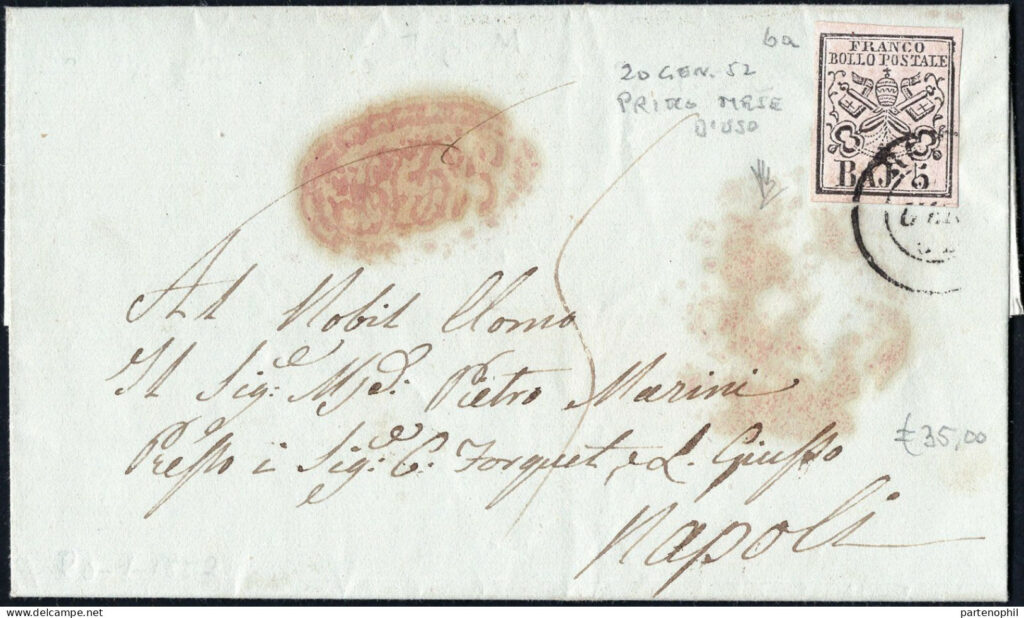 6a
20 GEN. 52
PRIMO MESE
D'USO
FRANCO
BOLLO POSTALE
BAJ 5
GEN
Al Nobil Uomo
Il Sig.e M.se Pietro Marini
Presso i Sig.i C. Forquet e L. Giusso
Napoli
€ 35,00
www.delcampe.net
partenophil